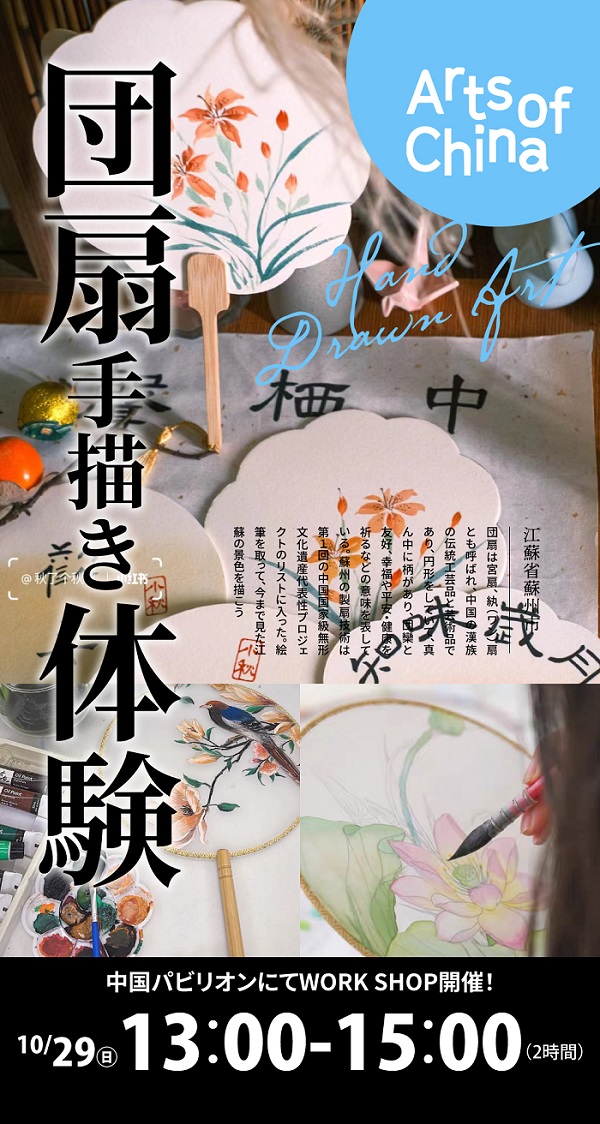 Arts of
China
Hand
Drawn Art
団扇手描き体験
江蘇省蘇州市
団扇は宮扇、紈(ワン)扇
とも呼ばれ、中国の漢族
の伝統工芸品と芸術品で
あり、円形をしていて、真
ん中に柄があり、団欒と
友好、幸福や平安・健康を
祈るなどの意味を表して
いる。蘇州の製扇技術は
第1回の中国国家級無形
文化遺産代表性プロジェ
クトのリストに入った。絵
筆を取って、今まで見た江
蘇の景色を描こう
栖
中
歳月
小秋
小秋
小红书
Oil Paint
Oil Paint
中国パビリオンにてWORK SHOP開催!
10/29㊐ 13:00-15:00(2時間)